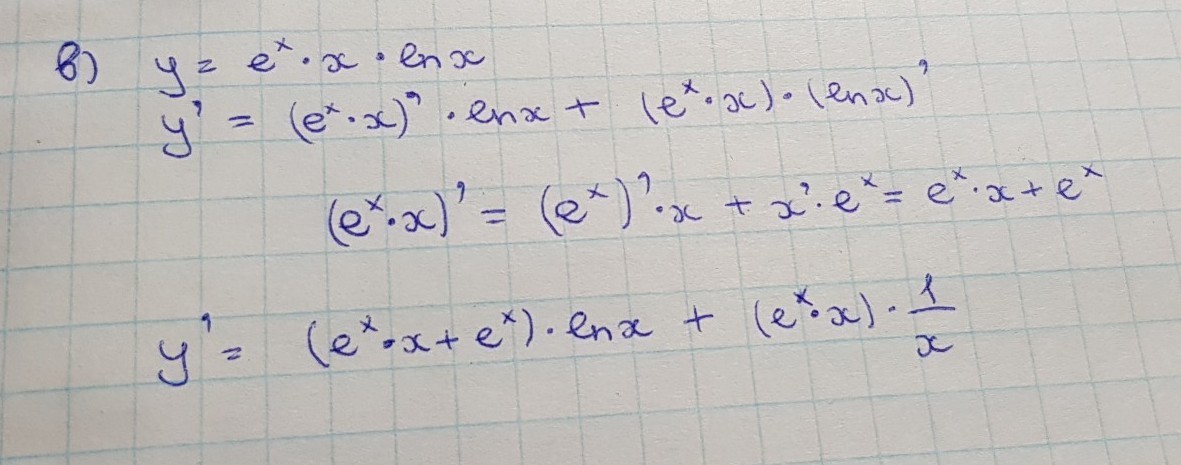 в) y = eˣ · x · ln x
y' = (eˣ · x)' · ln x + (eˣ · x) · (ln x)'
(eˣ · x)' = (eˣ)' · x + x' · eˣ = eˣ · x + eˣ
y' = (eˣ · x + eˣ) · ln x + (eˣ · x) · 1/x